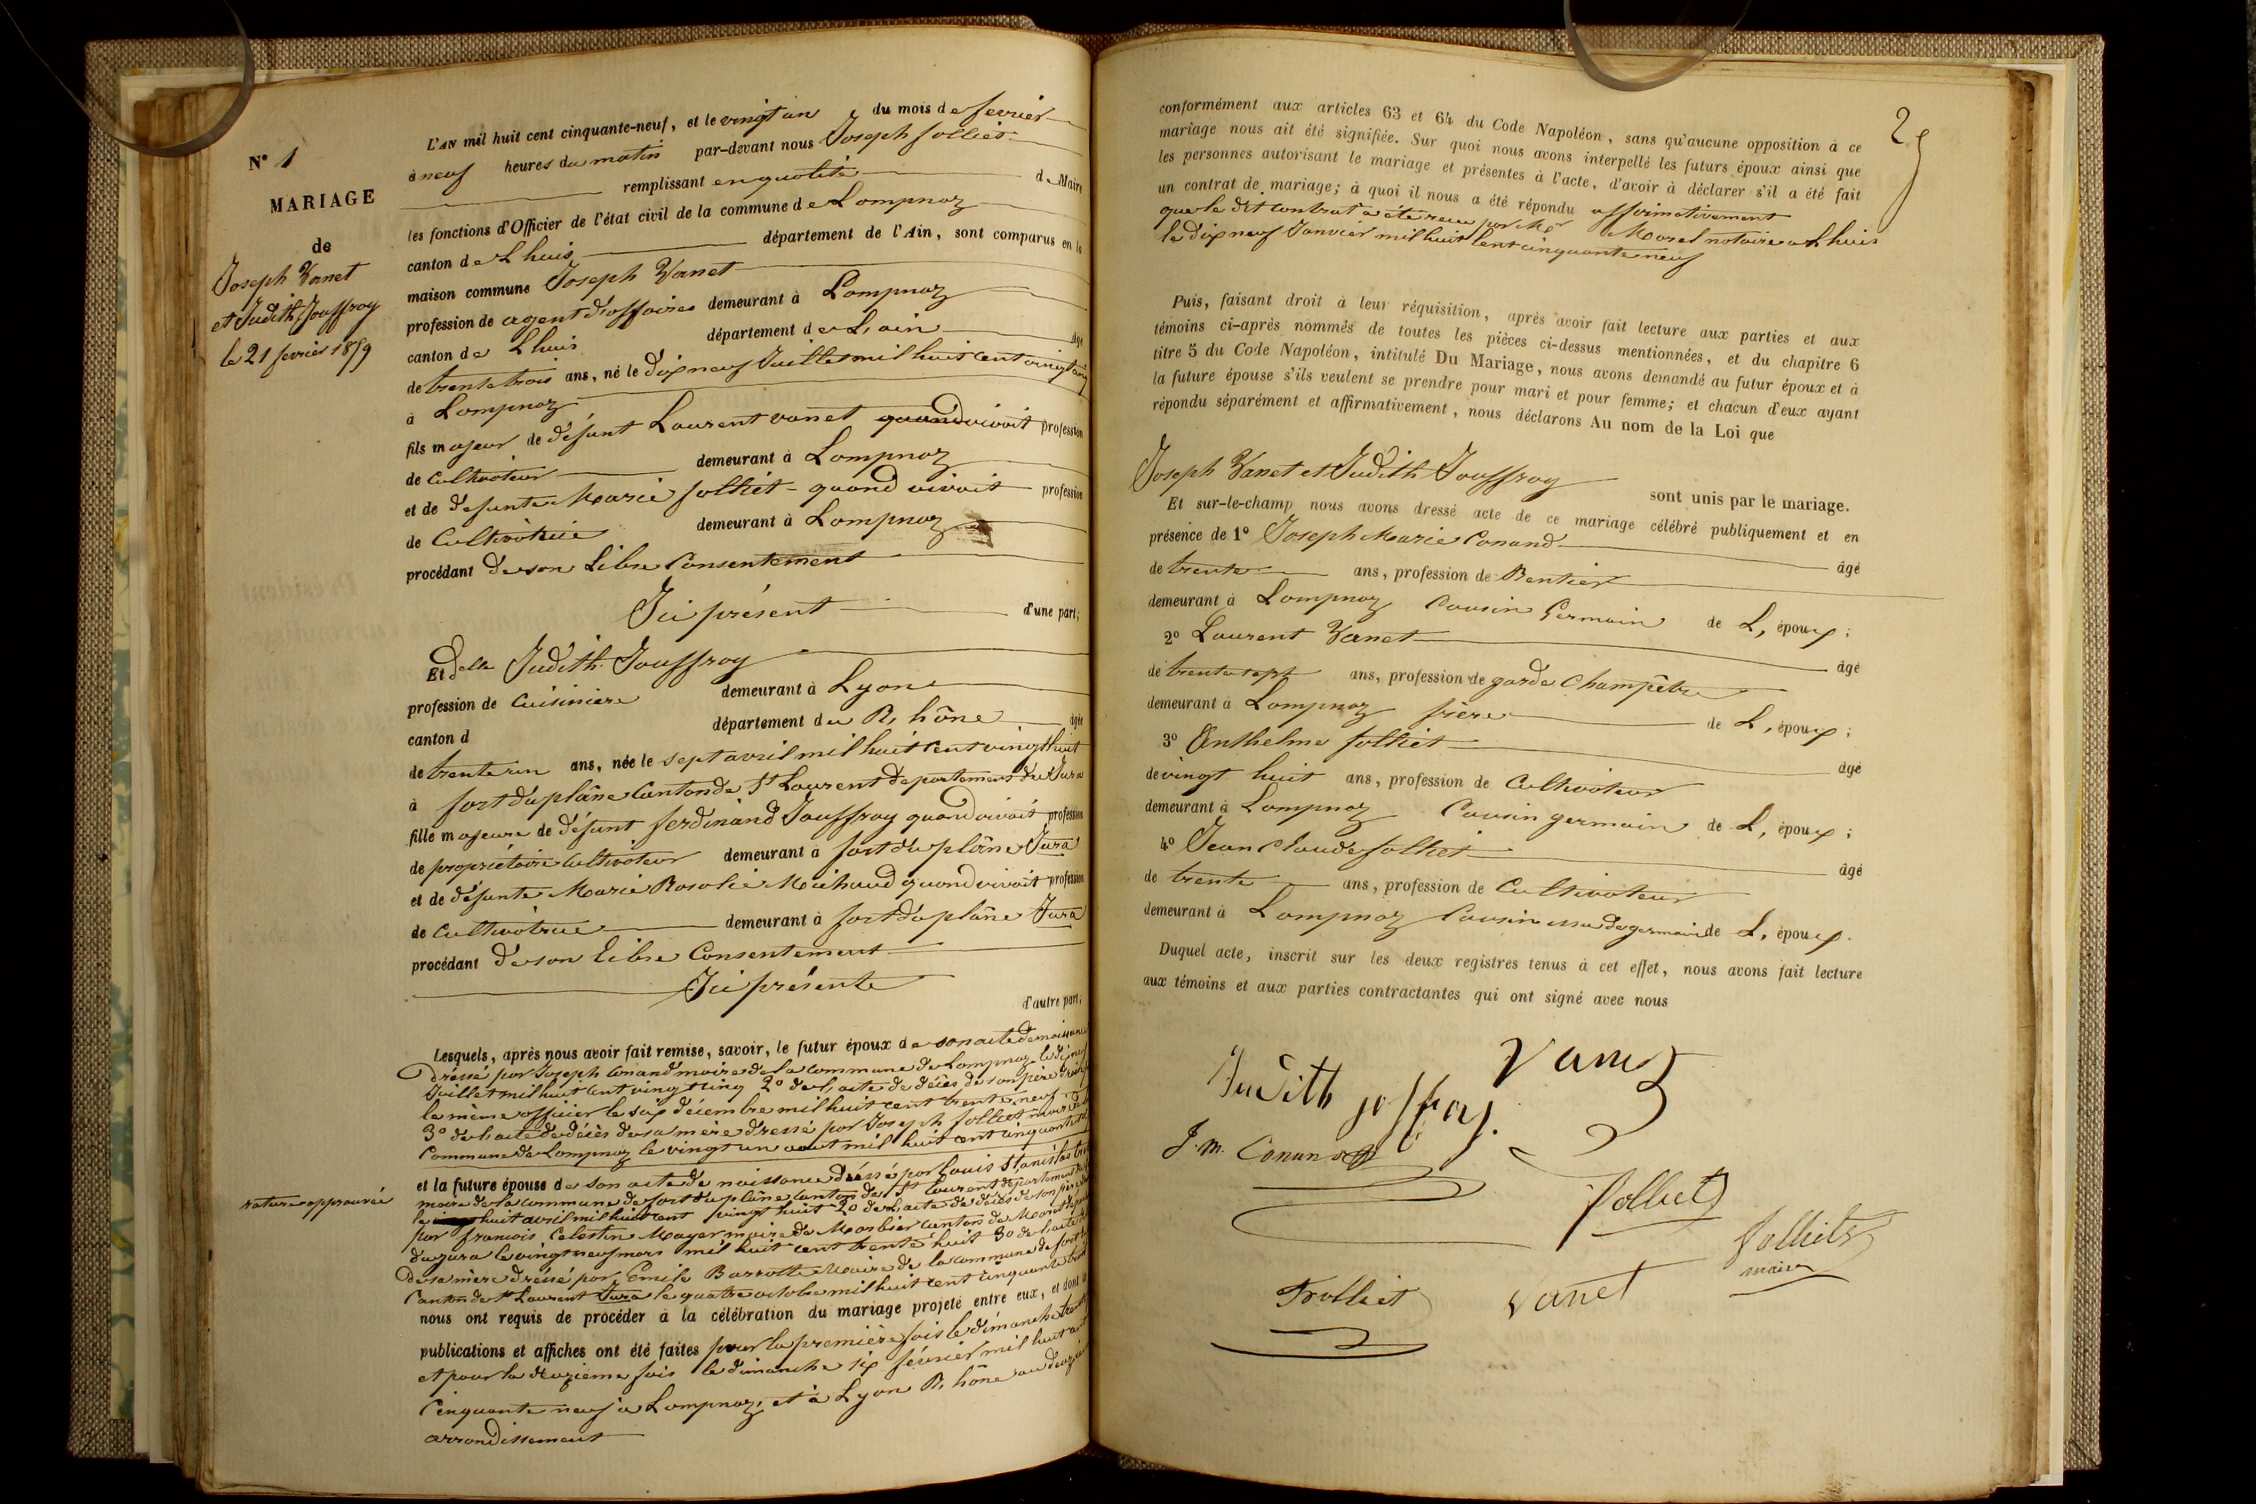 N° 1
MARIAGE
de
Joseph Vanet
et Judith Jouffroy
le 21 fevrier 1859
L'AN mil huit cent cinquante-neuf, et le vingt un du mois de fevrier
à neuf heures du matin par-devant nous Joseph folliet
remplissant en qualité de Maire
les fonctions d'Officier de l'état civil de la commune de Lompnaz
canton de Lhuis département de l'Ain, sont comparus en la
maison commune Joseph Vanet
profession de agent d'affaires demeurant à Lompnaz
canton de Lhuis département de L'ain âgé
de trente trois ans, né le dix neuf Juillet mil huit cent vingt cinq
à Lompnaz
fils majeur de défunt Laurent vanet quand vivait profession
de Cultivateur demeurant à Lompnaz
et de défunte Marie folliet quand vivait profession
de Cultivatrice demeurant à Lompnaz
procédant de son Libre Consentement
Ici présent d'une part;
Et delle Judith Jouffroy
profession de Cuisiniere demeurant à Lyon
canton d département du Rhône âgée
de trente un ans, née le sept avril mil huit cent vingt huit
à fort du plâne Canton de St Laurent departement du Jura
fille majeure de défunt ferdinand Jouffroy quand vivait profession
de propriétaire Cultivateur demeurant à fort du plâne Jura
et de défunte Marie Rosalie Michaud quand vivait profession
de Cultivatrice demeurant à fort du plâne Jura
procédant de son libre Consentement
Ici présente
d'autre part;
Lesquels, après nous avoir fait remise, savoir, le futur époux de son acte de naissance
dréssé par Joseph Conand maire de la commune de Lompnaz le dix neuf
Juillet mil huit cent vingt cinq 2° de L'acte de décès de son père
le même officier le six décembre mil huit cent trente neuf
3° de L'acte de décès de sa mère dressé par Joseph folliet maire de la
Commune de Lompnaz le vingt un aout mil huit cent cinquante
et la future épouse de son acte de naissance dréssé par Louis Stanislas
maire de la commune de fort du plâne canton de St Laurent departement
rature approuvée
le huit avril mil huit cent vingt huit 2° de L'acte de décès de son père
par francois Celestin Mayer maire de Morbier canton de
du jura le vingt neuf mars mil huit cent trente huit 3° de L'acte
de sa mère dréssé par Emile Maire de la commune de fort
Canton de St Laurent Jura le quatre octobre mil huit cent cinquante
nous ont requis de procéder à la célébration du mariage projeté entre eux, et dont les
publications et affiches ont été faites pour la première fois le dimanche
et pour la deuxieme fois le dimanche six février mil huit cent
Cinquante neuf à Lompnaz, et à Lyon Rhône au deuxième
arrondissement
29
conformément aux articles 63 et 64 du Code Napoléon, sans qu'aucune opposition à ce
mariage nous ait été signifiée. Sur quoi nous avons interpellé les futurs époux ainsi que
les personnes autorisant le mariage et présentes à l'acte, d'avoir à déclarer s'il a été fait
un contrat de mariage; à quoi il nous a été répondu affirmativement
que le dit contrat a été recu par Me Morel notaire a Lhuis
le dix neuf Janvier mil huit Cent cinquante neuf
Puis, faisant droit à leur réquisition, après avoir fait lecture aux parties et aux
témoins ci-après nommés de toutes les pièces ci-dessus mentionnées, et du chapitre 6
titre 5 du Code Napoléon, intitulé Du Mariage, nous avons demandé au futur époux et à
la future épouse s'ils veulent se prendre pour mari et pour femme; et chacun d'eux ayant
répondu séparément et affirmativement, nous déclarons Au nom de la Loi que
Joseph Vanet et Judith Jouffroy
sont unis par le mariage.
Et sur-le-champ nous avons dressé acte de ce mariage célébré publiquement et en
présence de 1° Joseph Marie Conand âgé
de trente ans, profession de Rentier
demeurant à Lompnaz Cousin Germain de L, époux;
2° Laurent Vanet âgé
de trente sept ans, profession de garde Champêtre
demeurant à Lompnaz frère de L, époux;
3° Anthelme folliet âgé
de vingt huit ans, profession de Cultivateur
demeurant à Lompnaz Cousin germain de L, époux;
4° Jean Claude folliet âgé
de trente ans, profession de Cultivateur
demeurant à Lompnaz Cousin issu de germain de L, époux.
Duquel acte, inscrit sur les deux registres tenus à cet effet, nous avons fait lecture
aux témoins et aux parties contractantes qui ont signé avec nous
Vanet
Judith joffroy.
J. M. Conand
folliet
folliet
maire
Trolliet
vanet